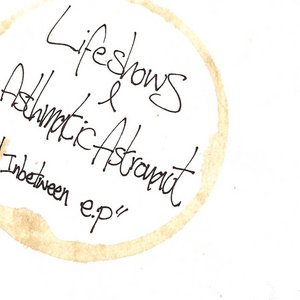 Lifeshows
&
Asthmatic Astronaut
"Inbetween e.p"